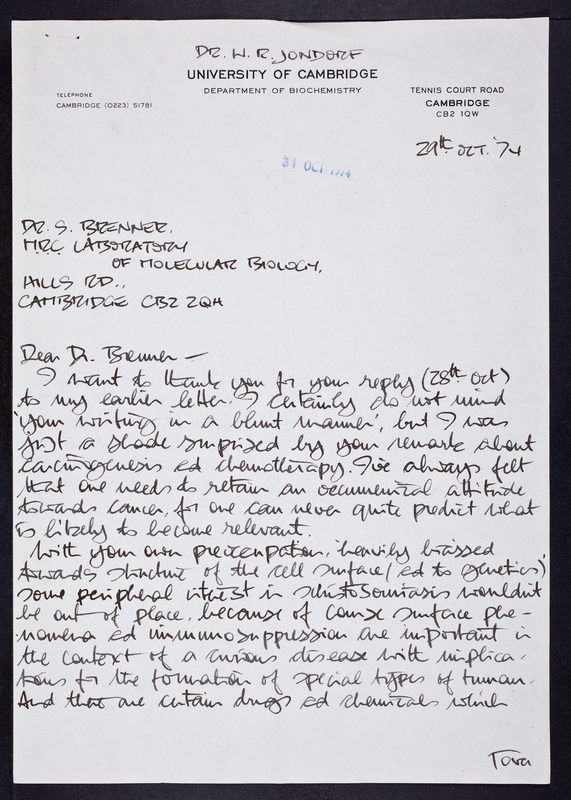 DR. W. R. JONDORF
UNIVERSITY OF CAMBRIDGE
DEPARTMENT OF BIOCHEMISTRY
TELEPHONE
CAMBRIDGE (0223) 51781
TENNIS COURT ROAD
CAMBRIDGE
CB2 1QW
29th OCT. '74
31 OCT 1974
DR. S. BRENNER,
MRC LABORATORY
OF MOLECULAR BIOLOGY,
HILLS RD.,
CAMBRIDGE CB2 2QH
Dear Dr. Brenner —
I want to thank you for your reply (28th Oct)
to my earlier letter. I certainly do not mind
'your writing in a blunt manner', but I was
just a shade surprised by your remark about
carcinogenesis ed chemotherapy. I've always felt
that one needs to retain an oecumenical attitude
towards cancer, for one can never quite predict what
is likely to become relevant.
With your own preoccupation, 'heavily biassed
towards structure of the cell surface (ed to genetics)',
some peripheral interest in schistosomiasis wouldn't
be out of place, because of course surface phe-
nomena ed immunosuppression are important in
the context of a curious disease with implica-
tions for the formation of special types of tumour.
And there are certain drugs ed chemicals which
Over